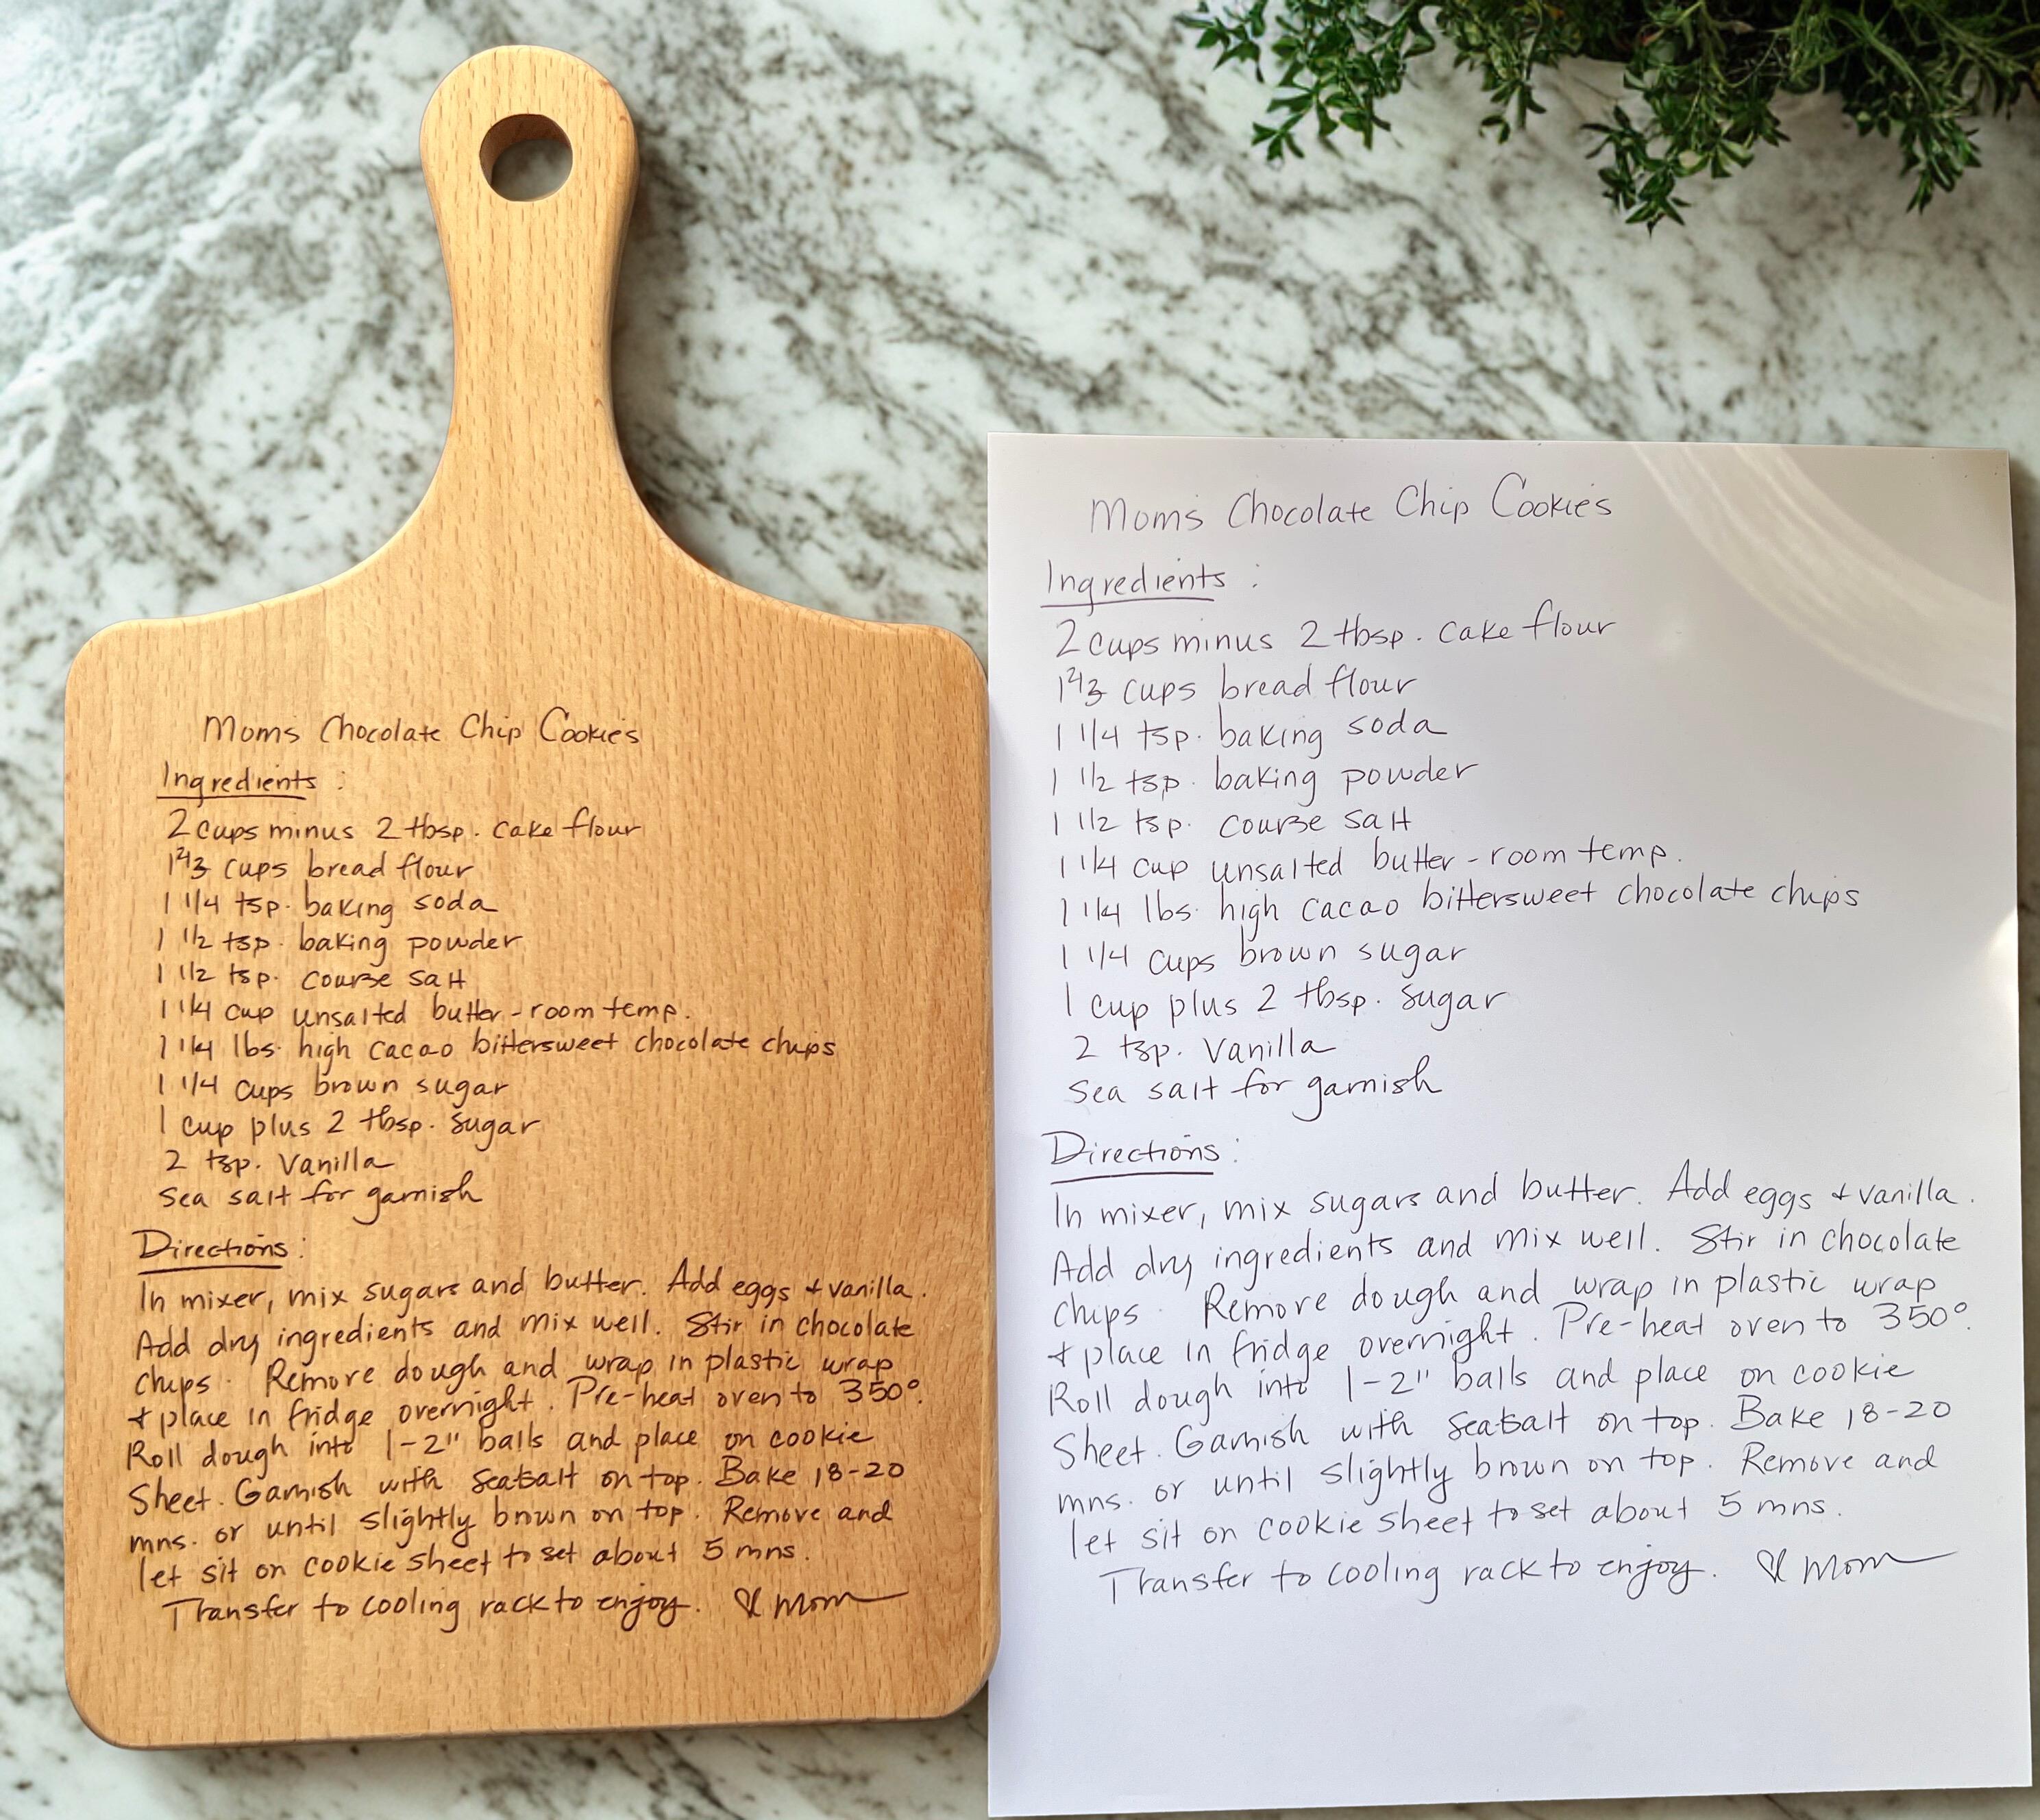 Moms Chocolate Chip Cookies
Ingredients :
2 cups minus 2 tbsp. cake flour
1 2/3 cups bread flour
1 1/4 tsp. baking soda
1 1/2 tsp. baking powder
1 1/2 tsp. course salt
1 1/4 cup unsalted butter - room temp.
1 1/4 lbs. high cacao bittersweet chocolate chips
1 1/4 cups brown sugar
1 cup plus 2 tbsp. sugar
2 tsp. vanilla
Sea salt for garnish
Directions :
In mixer, mix sugars and butter. Add eggs + vanilla.
Add dry ingredients and mix well. Stir in chocolate
chips. Remove dough and wrap in plastic wrap
+ place in fridge overnight. Pre-heat oven to 350°.
Roll dough into 1-2" balls and place on cookie
Sheet. Garnish with seasalt on top. Bake 18-20
mns. or until slightly brown on top. Remove and
let sit on cookie sheet to set about 5 mns.
Transfer to cooling rack to enjoy. ♡ Mom
Moms Chocolate Chip Cookies
Ingredients :
2 cups minus 2 tbsp. cake flour
1 2/3 cups bread flour
1 1/4 tsp. baking soda
1 1/2 tsp. baking powder
1 1/2 tsp. course salt
1 1/4 cup unsalted butter - room temp.
1 1/4 lbs. high cacao bittersweet chocolate chips
1 1/4 cups brown sugar
1 cup plus 2 tbsp. sugar
2 tsp. vanilla
Sea salt for garnish
Directions :
In mixer, mix sugars and butter. Add eggs + vanilla.
Add dry ingredients and mix well. Stir in chocolate
chips. Remove dough and wrap in plastic wrap
+ place in fridge overnight. Pre-heat oven to 350°.
Roll dough into 1-2" balls and place on cookie
Sheet. Garnish with seasalt on top. Bake 18-20
mns. or until slightly brown on top. Remove and
let sit on cookie sheet to set about 5 mns.
Transfer to cooling rack to enjoy. ♡ Mom